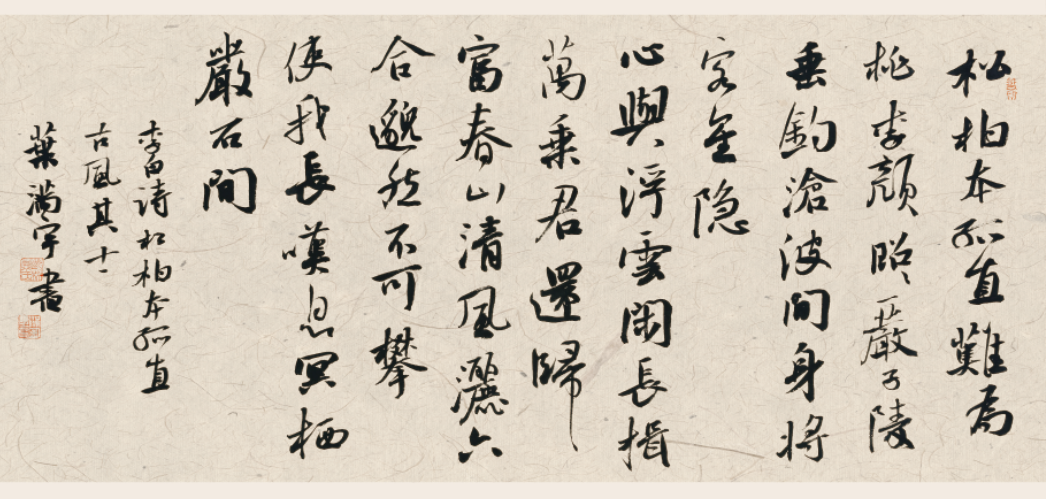 松柏本孤直難為
桃李顏昭〻嚴子陵
垂釣滄波間身將
客星隐
心與浮雲閑長揖
萬乘君還歸
富春山清風灑六
合邈然不可攀
使我長嘆息冥栖
嚴石間
李白诗松柏本孤直
古風其十二
葉满宇書